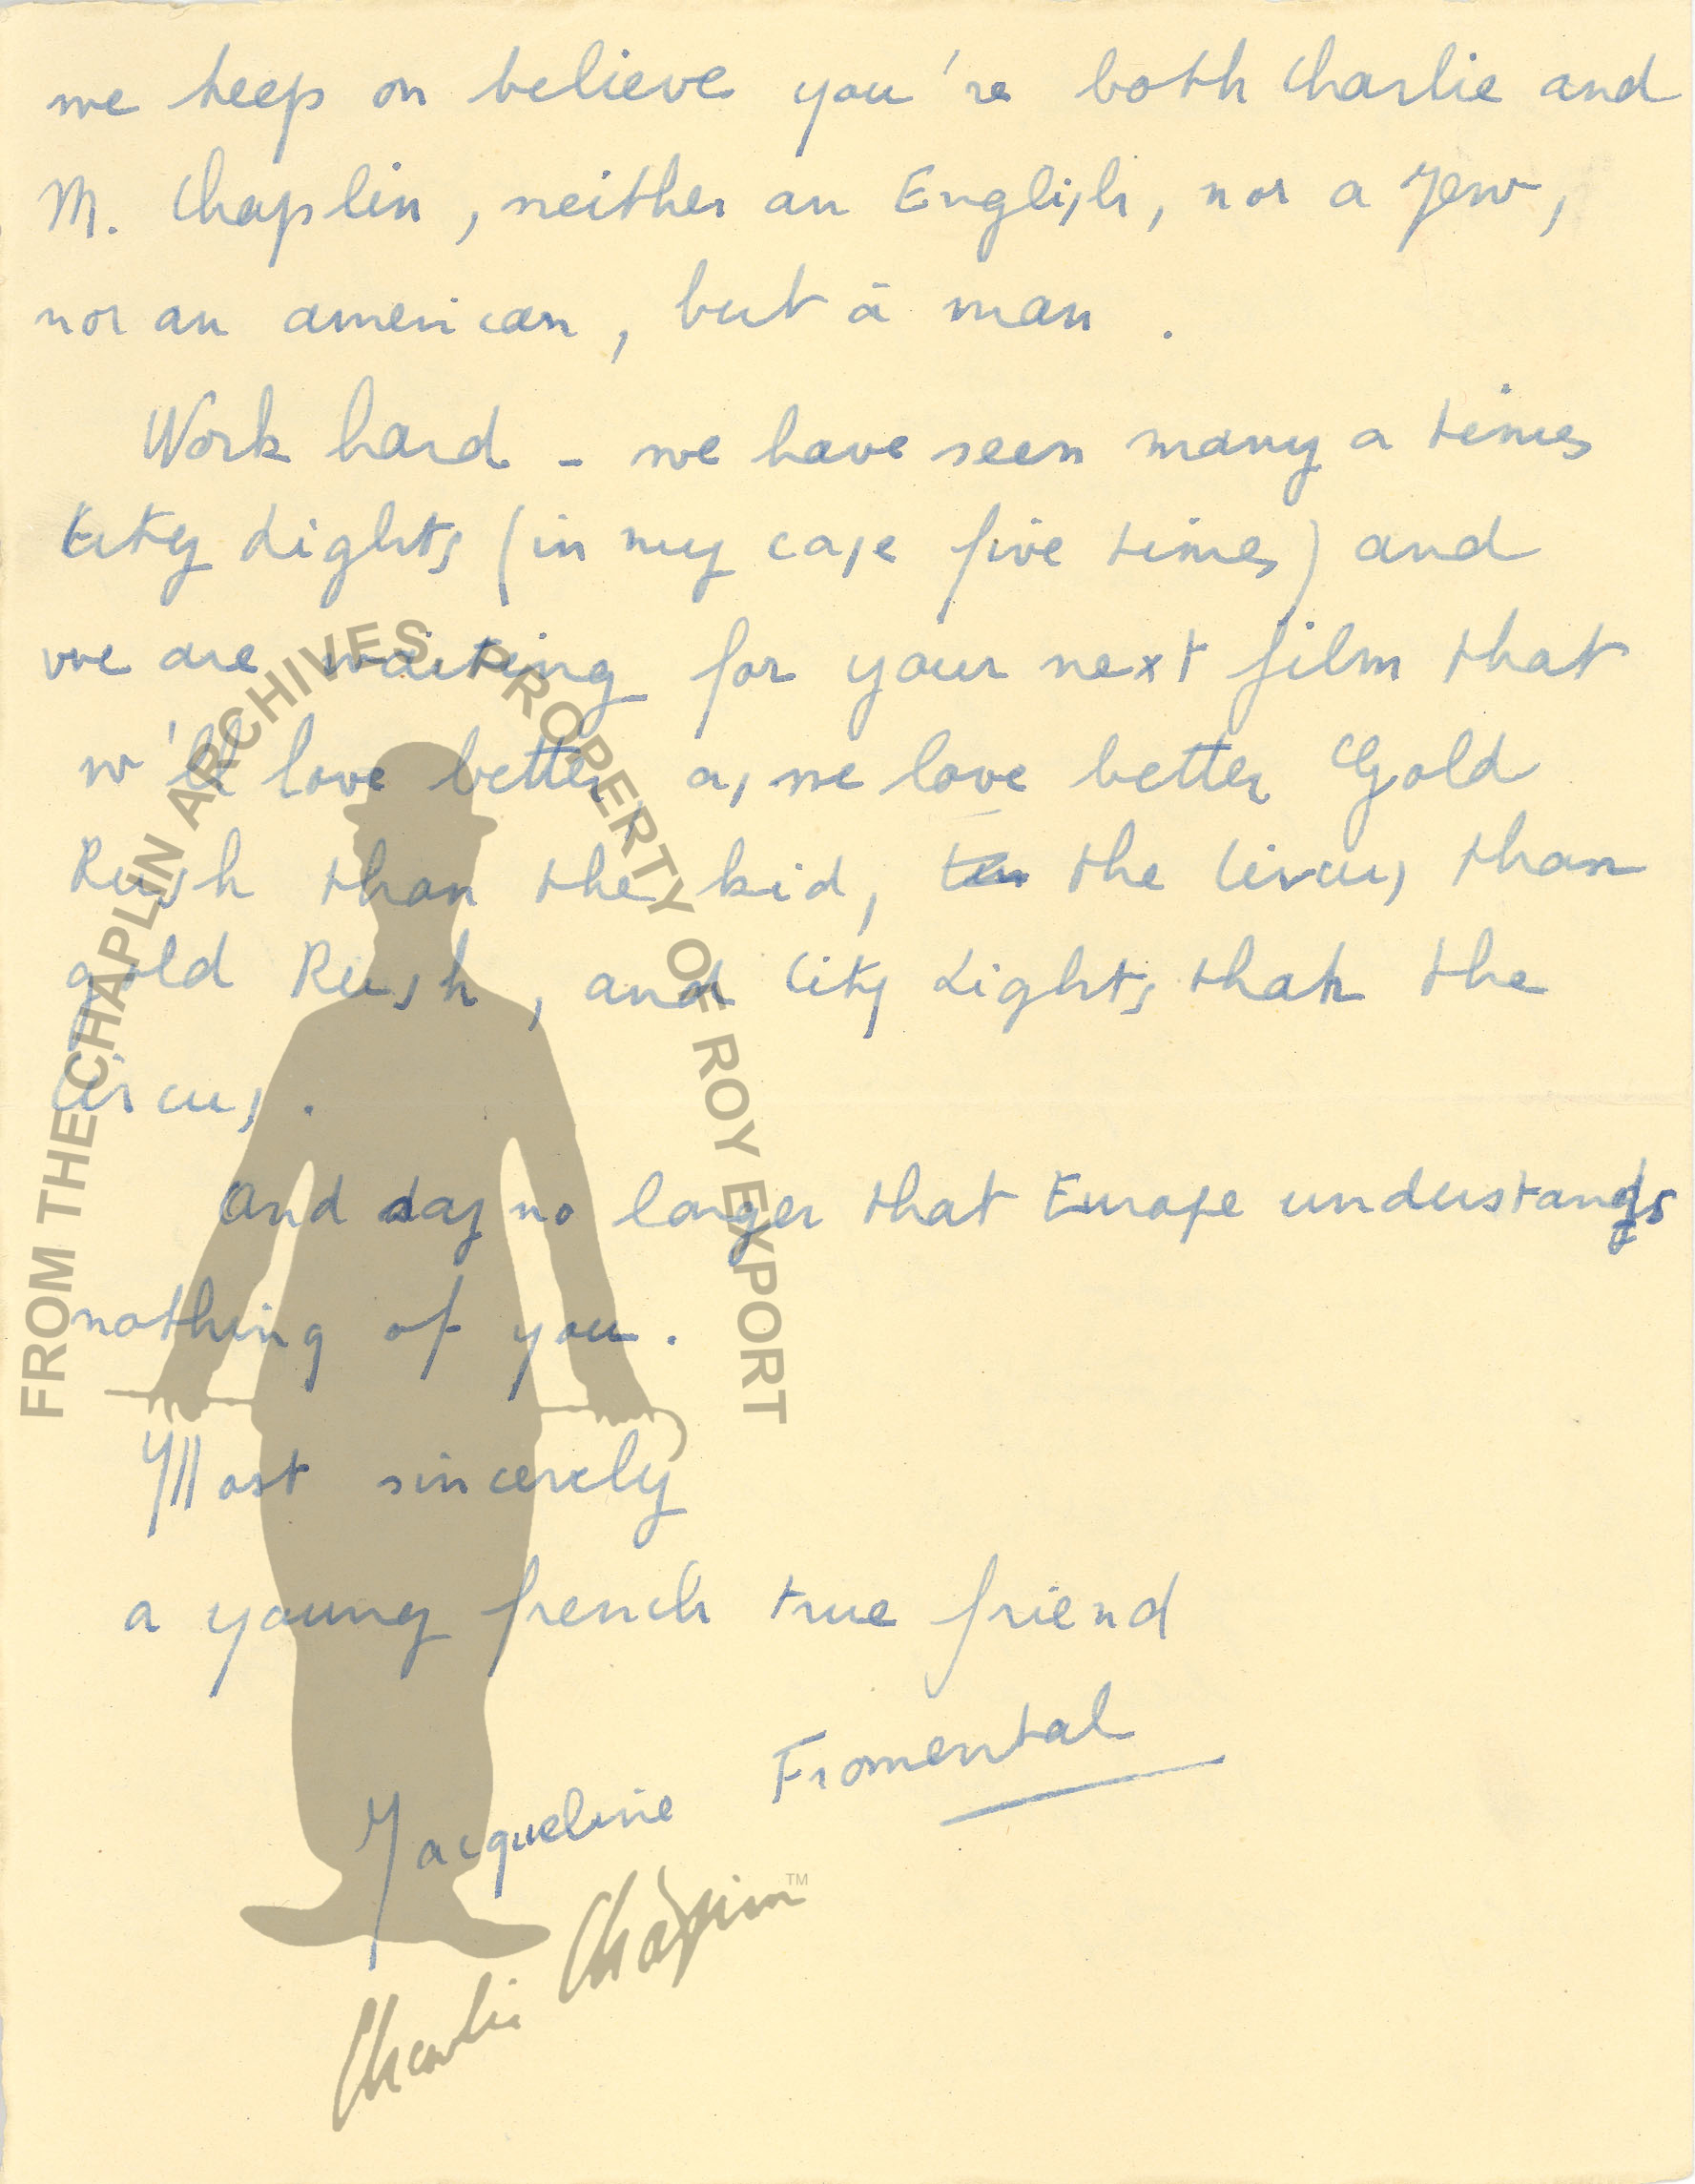 we keep on believe you're both Charlie and
M. Chaplin, neither an English, nor a Jew,
nor an american, but a man.
Work hard - we have seen many a times
City Lights (in my case five times) and
we are waiting for your next film that
w'll love better, as we love better Gold
Rush than the kid, the Circus than
gold Rush, and City Lights than the
Circus.
And say no longer that Europe understands
nothing of you.
Most sincerely
a young french true friend
Jacqueline Fromental
FROM THE CHAPLIN ARCHIVES, PROPERTY OF ROY EXPORT
Charlie Chaplin™